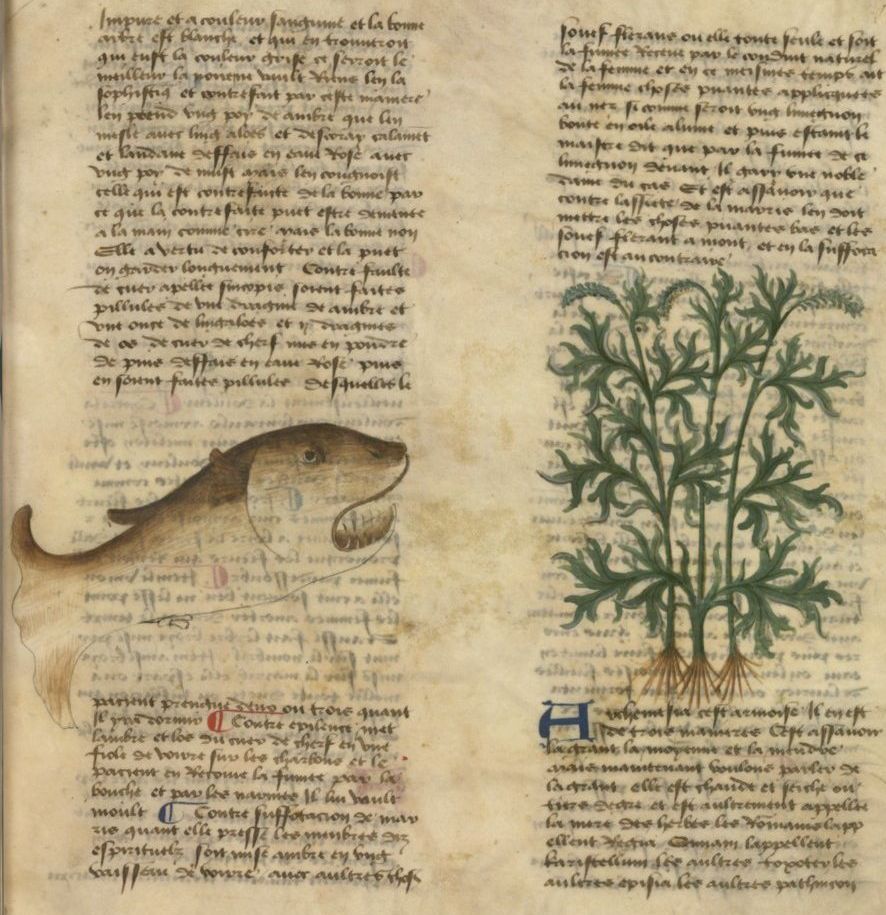 Impure et a couleur sanguine et la bonne
ambre est blanche et qui en trouveroit
qui eust la couleur grise ce seroit le
meilleur la pouent vault Riens len la
sophistiq et contrefait par ceste maniere
len prend ung poy de ambre que len
mesle auec ling aloes et destorax calamet
et laudane deffais en eaue Rose auec
ung poy de must mais len congnoist
celle qui est contrefaicte de la bonne par
ce que la contrefaite puet estre demenee
a la main comme cire mais la bonne non
Elle a vertu de conforter et la puet
on garder longuement Contre faulte
de cuer apellee sincopis soient faites
pillules de une dragme de ambre et
une once de lingaloes et ii dragmes
de os de cuer de cherf mis en pouldre
de puis deffais en eaue Rose puis
en soient faites pillules desquelles le
pacient prengne deux ou trois quant
Il yra dormir Contre epilence met
lambre et los du cuer de cherf en une
fiole de voirre sur les charbons et le
pacient en Recoiue la fumee par la
bouche et par les narines Il lui vault
moult Contre suffocacion de mar
ris quant elle presse les menbres diz
espirituelz soit mise ambre en ung
vaisseau de voirre auec aultres choses
souef flerans ou elle toute seule et soit
la fumee Receue par le conduit naturel
de la femme et en ce meismes temps ait
la femme choses puantes appliquees
au nez si comme seroit ung limegnon
boute en oile alume et puis estaint le
maistre dit que par la fumee de ce
limegnon deuant Il gary une noble
dame du cas Et est assauoir que
contre lassiete de la marris len doit
mettre les choses puantes bas et les
souef flerant a mont et en la suffoca
cion est au contraire
Archemesia cest armoise Il en est
de trois manieres Cest assauoir
la grant la moyenne et la mendre
mais maintenant voulons parler de
la grant elle est chaude et seiche ou
tiers degre et est aultrement appellee
la mere des herbes les Romains lapp
ellent Regia lappellent
les aultres toxotes les
aultres ephisia les aultres